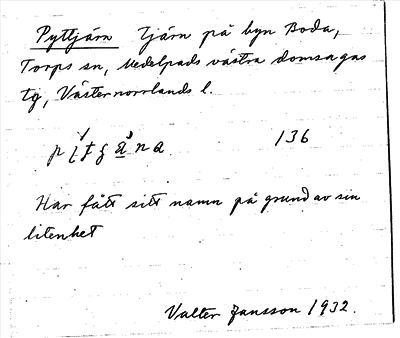 Pyttjärn Tjärn på byn Boda,
Torps sn, Medelpads västra domsagas
tg, Västernorrlands l.
136
Har fått sitt namn på grund av sin
litenhet
Valter Jansson 1932.